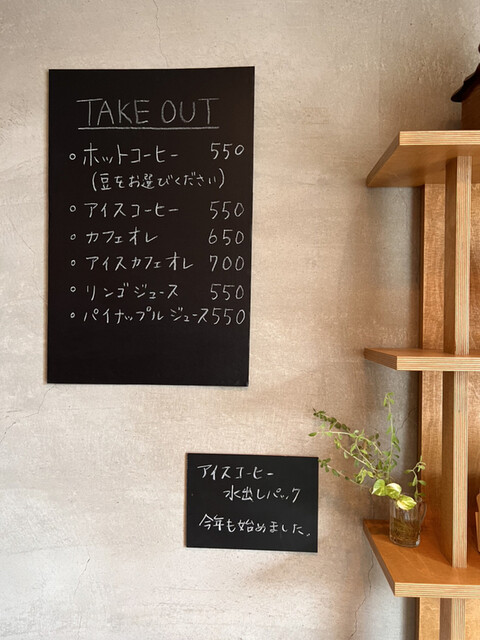 TAKE OUT
○ ホットコーヒー 550
(豆をお選びください)
○ アイスコーヒー 550
○ カフェオレ 650
○ アイスカフェオレ 700
○ リンゴジュース 550
○ パイナップルジュース 550
アイスコーヒー
水出しパック
今年も始めました。